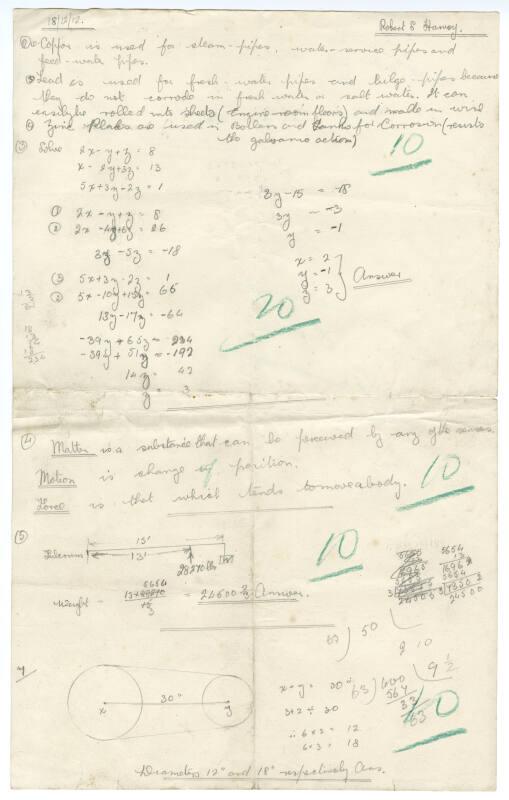 18/12/12.
Robert S Harvey.
Copper is used for steam-pipes, water-service pipes and
feed-water pipes.
Lead is used for fresh-water pipes and bilge-pipes because
they do not corrode in fresh water or salt water. It can
easily be rolled into sheets (Engine room floors) and made in wire
Zinc Plates are used in Boilers and Tanks for Corrosion (resists
the galvanic action)
10
③ Solve 2x - y + z = 8
x - 2y + 3z = 13
5x + 3y - 2z = 1
① 2x - y + z = 8
② 2x - 4y + 6z = 26
3y - 5z = -18
③ 5x + 3y - 2z = 1
② 5x - 10y + 15z = 65
13y - 17z = -64
-39y + 65z = 234
-39y + 51z = -192
14z = 42
z = 3
3y - 15 = -18
3y = -3
y = -1
x = 2
y = -1
z = 3
Answer
20
④ Matter is a substance that can be perceived by any of the senses.
Motion is change of position.
Force is that which tends to move a body.
10
⑤
15'
Fulcrum
13'
Weight = = 24500 Answer.
10
5654
24500
50
9 10
9 ½
7
30"
x y
x - y = 30"
3 + 2 = 30
∴ 6 x 2 = 12
6 x 3 = 18
63 ) 600
567
33
63
Diameters 12" and 18" respectively Ans.